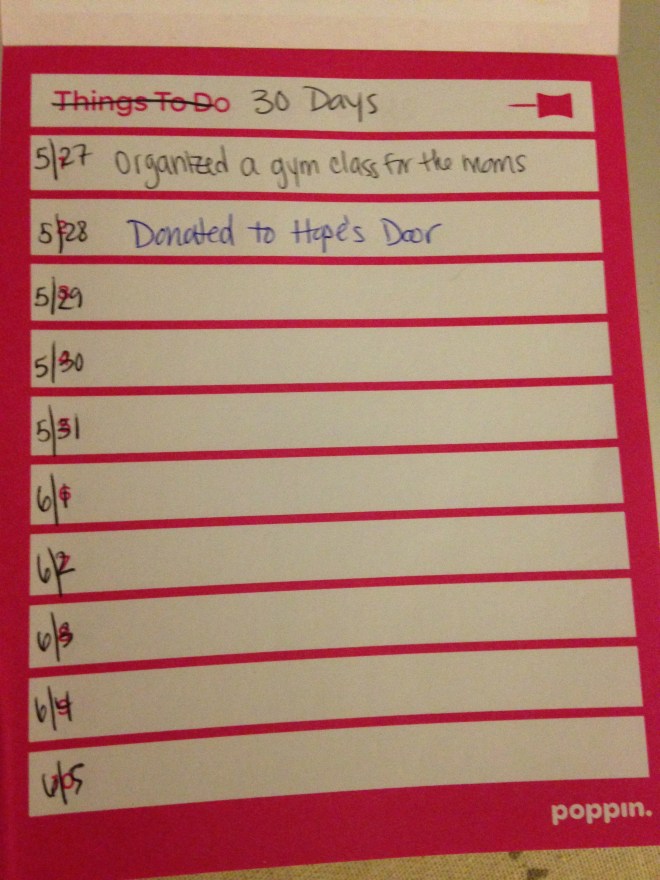 Things To Do 30 Days
5/27 Organized a gym class for the moms
5/28 Donated to Hope's Door
5/29
5/30
5/31
6/1
6/2
6/3
6/4
6/5
poppin.